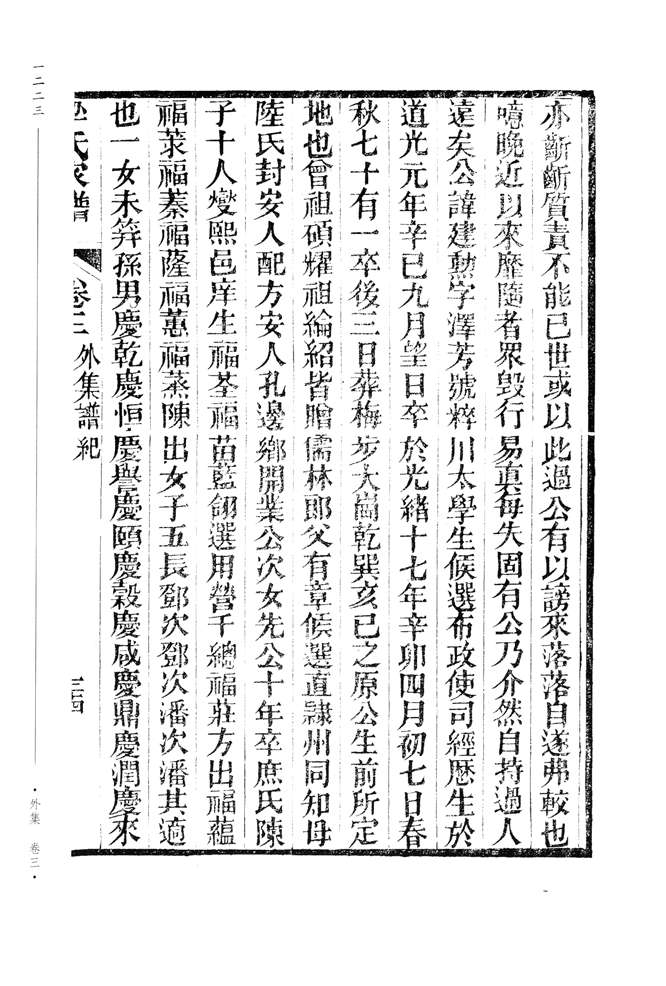 亦齗齗質責不能已世或以此過公有以謗來落落自遂弗較也
噫晚近以來靡隨者眾毀行易真每失固有公乃介然自持過人
遠矣公諱建勳字澤芳號粹川太學生候選布政使司經歷生於
道光元年辛巳九月望日卒於光緒十七年辛卯四月初七日春
秋七十有一卒後三日葬梅步大崗乾巽亥巳之原公生前所定
地也曾祖碩耀祖綸紹皆贈儒林郎父有章候選直隸州同知母
陸氏封安人配方安人孔邊鄉開業公次女先公十年卒庶氏陳
子十人燮熙邑庠生福荃福苗藍翎選用營千總福莊方出福蘊
福菉福蓁福蕯福蕙福蒸陳出女子五長鄧次鄧次潘次潘其適
也一女未笄孫男慶乾慶恒慶譽慶頤慶穀慶咸慶鼎慶潤慶來
氏家譜 卷三 外集譜紀 三四
一二二三
·外集 卷三·